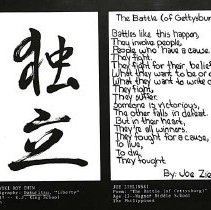 独
立
The Battle (of Gettysburg)
Battles like this happen,
They involve people,
People who have a cause.
They fight.
They fight for their belief
What they want to be or
What they want to write or
They fight,
They suffer.
Someone is victorious,
The other falls in defeat.
But in their heart,
They're all winners.
They fought for a cause,
To live,
To die,
They fought.
By: Joe Zie
HOY CHIN
"Liberty"
King School
JOE ZIELINSKI
Poem: "The Battle (of Gettysburg)"
School
The Philippines